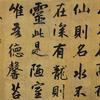 仙則名水不
在深有龍則
靈斯是陋室
惟吾德馨苔